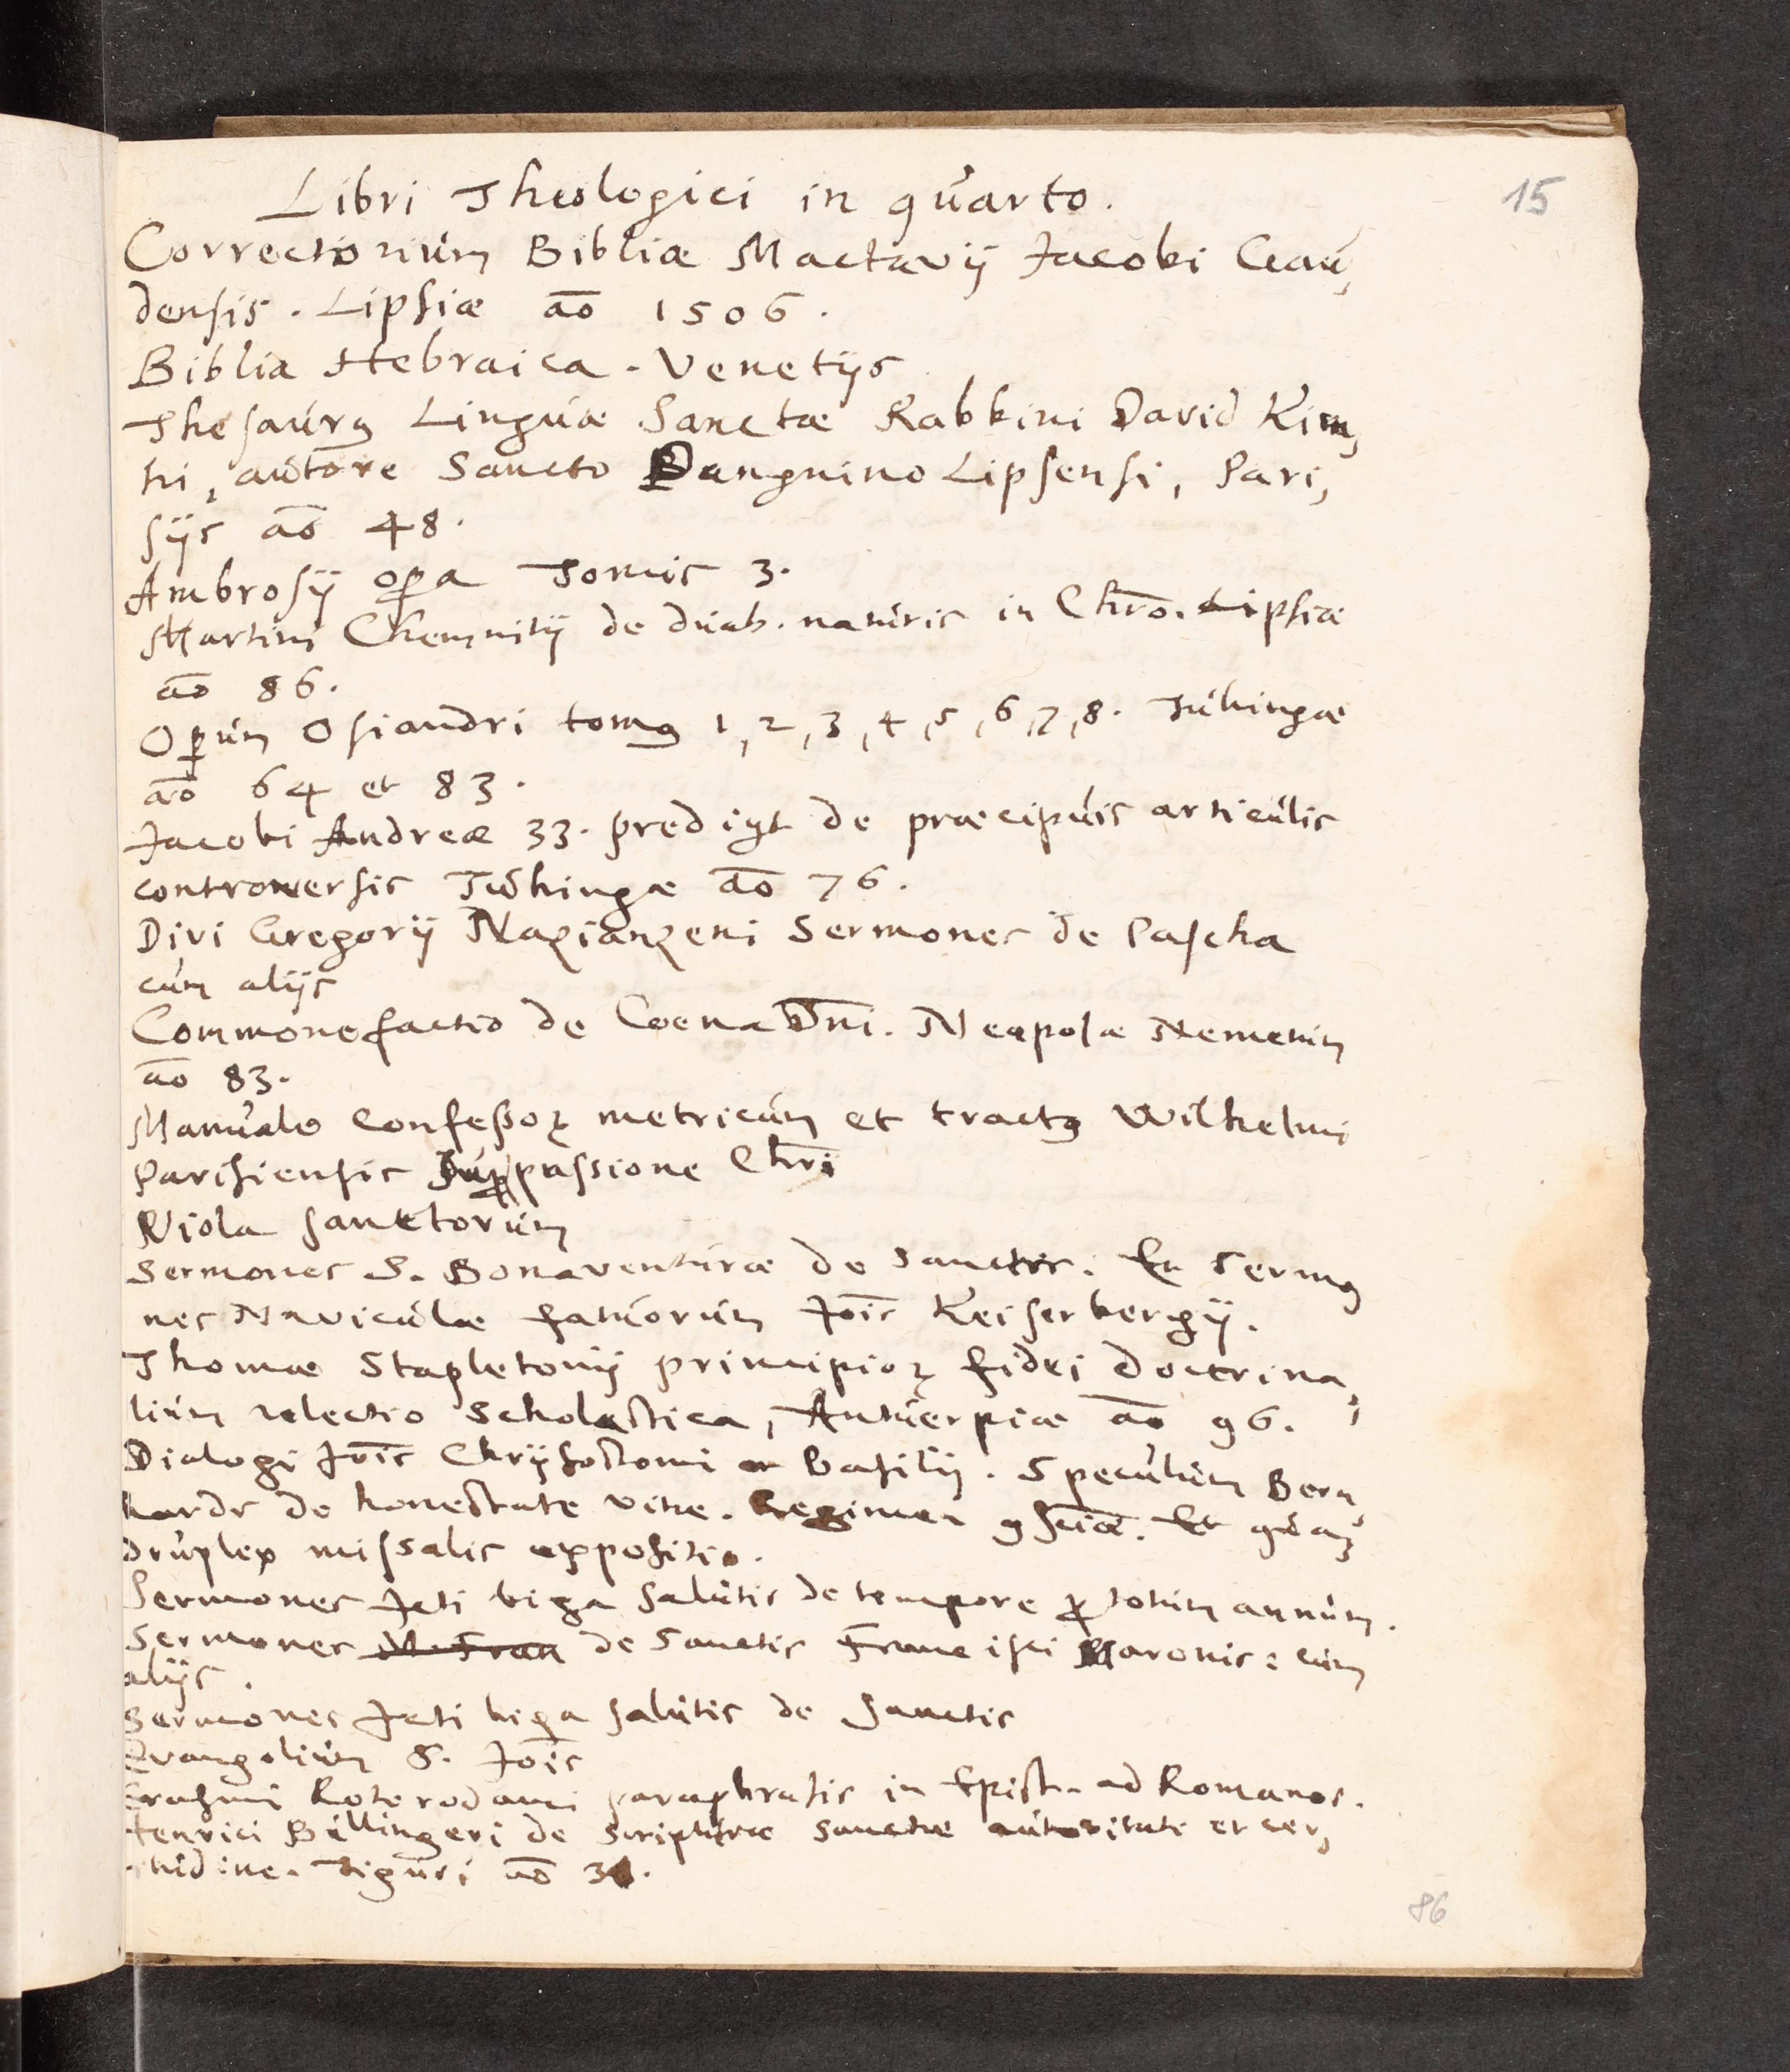 Libri Theologici in quarto.
15
Correctorium Bibliæ Mactavij Jacobi Gau,
densis. Lipsiæ aō 1506.
Biblia Hebraica. Venetijs
Thesaurꝰ Linguæ Sanctæ Rabbini David Kim,
hi, autore Sancto Pangnino Lipsensi, Pari,
sijs aō 48.
Ambrosij oꝑa Tomis 3.
Martini Chemnitij de duab. naturis in Chro. Lipsiæ
aō 86.
Oꝑum Osiandri tomꝰ 1, 2, 3, 4, 5, 6, 7, 8. Tubingæ
aō 64 et 83.
Jacobi Andreæ 33. predigt de præcipuis articulis
controversis Tubingæ aō 76.
Divi Gregorij Nazianzeni Sermones de Pascha
cum alijs
Commonefactio de Coena Dni. Neapolæ Nemetum
aō 83.
Manuale Confessoꝝ metricum et tractꝰ Wilhelmi
Parisiensis Suꝑ passione Chri
Viola sanctorum
Sermones S. Bonaventuræ de Sanctis. Et Sermo,
nes Naviculæ fatuorum Jois Keiserbergij.
Thomæ Stapletonij principioꝝ fidei doctrina,
lium relectio Scholastica, Antuerpiæ aō 96.
Dialogi Jois Chrijsostomi et Basilij. Speculum Bern,
hardi de honestate vitæ. Regimen ꝯsciæ. Et qua,
druplex missalis expositio.
Sermones dcti biga salutis de tempore ꝑ totum annum.
Sermones M. Fran de Sanctis Francisci Maronis: cum
alijs.
Sermones dcti biga salutis de Sanctis
Evangelium S. Jois
Erasmi Roterodami paraphrasis in Epist. ad Romanos.
Henrici Bullingeri de scripturæ sanctæ autoritate et cer,
titudine. Tiguri aō
86